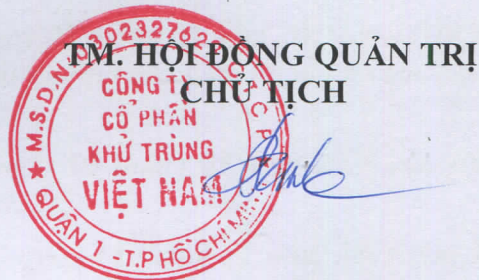 TM. HỘI ĐỒNG QUẢN TRỊ
CHỦ TỊCH
M.S.D.N:0302327629
C.T.C.P
CÔNG TY
CỔ PHẦN
KHỬ TRÙNG
VIỆT NAM
QUẬN 1 - T.P HỒ CHÍ MINH